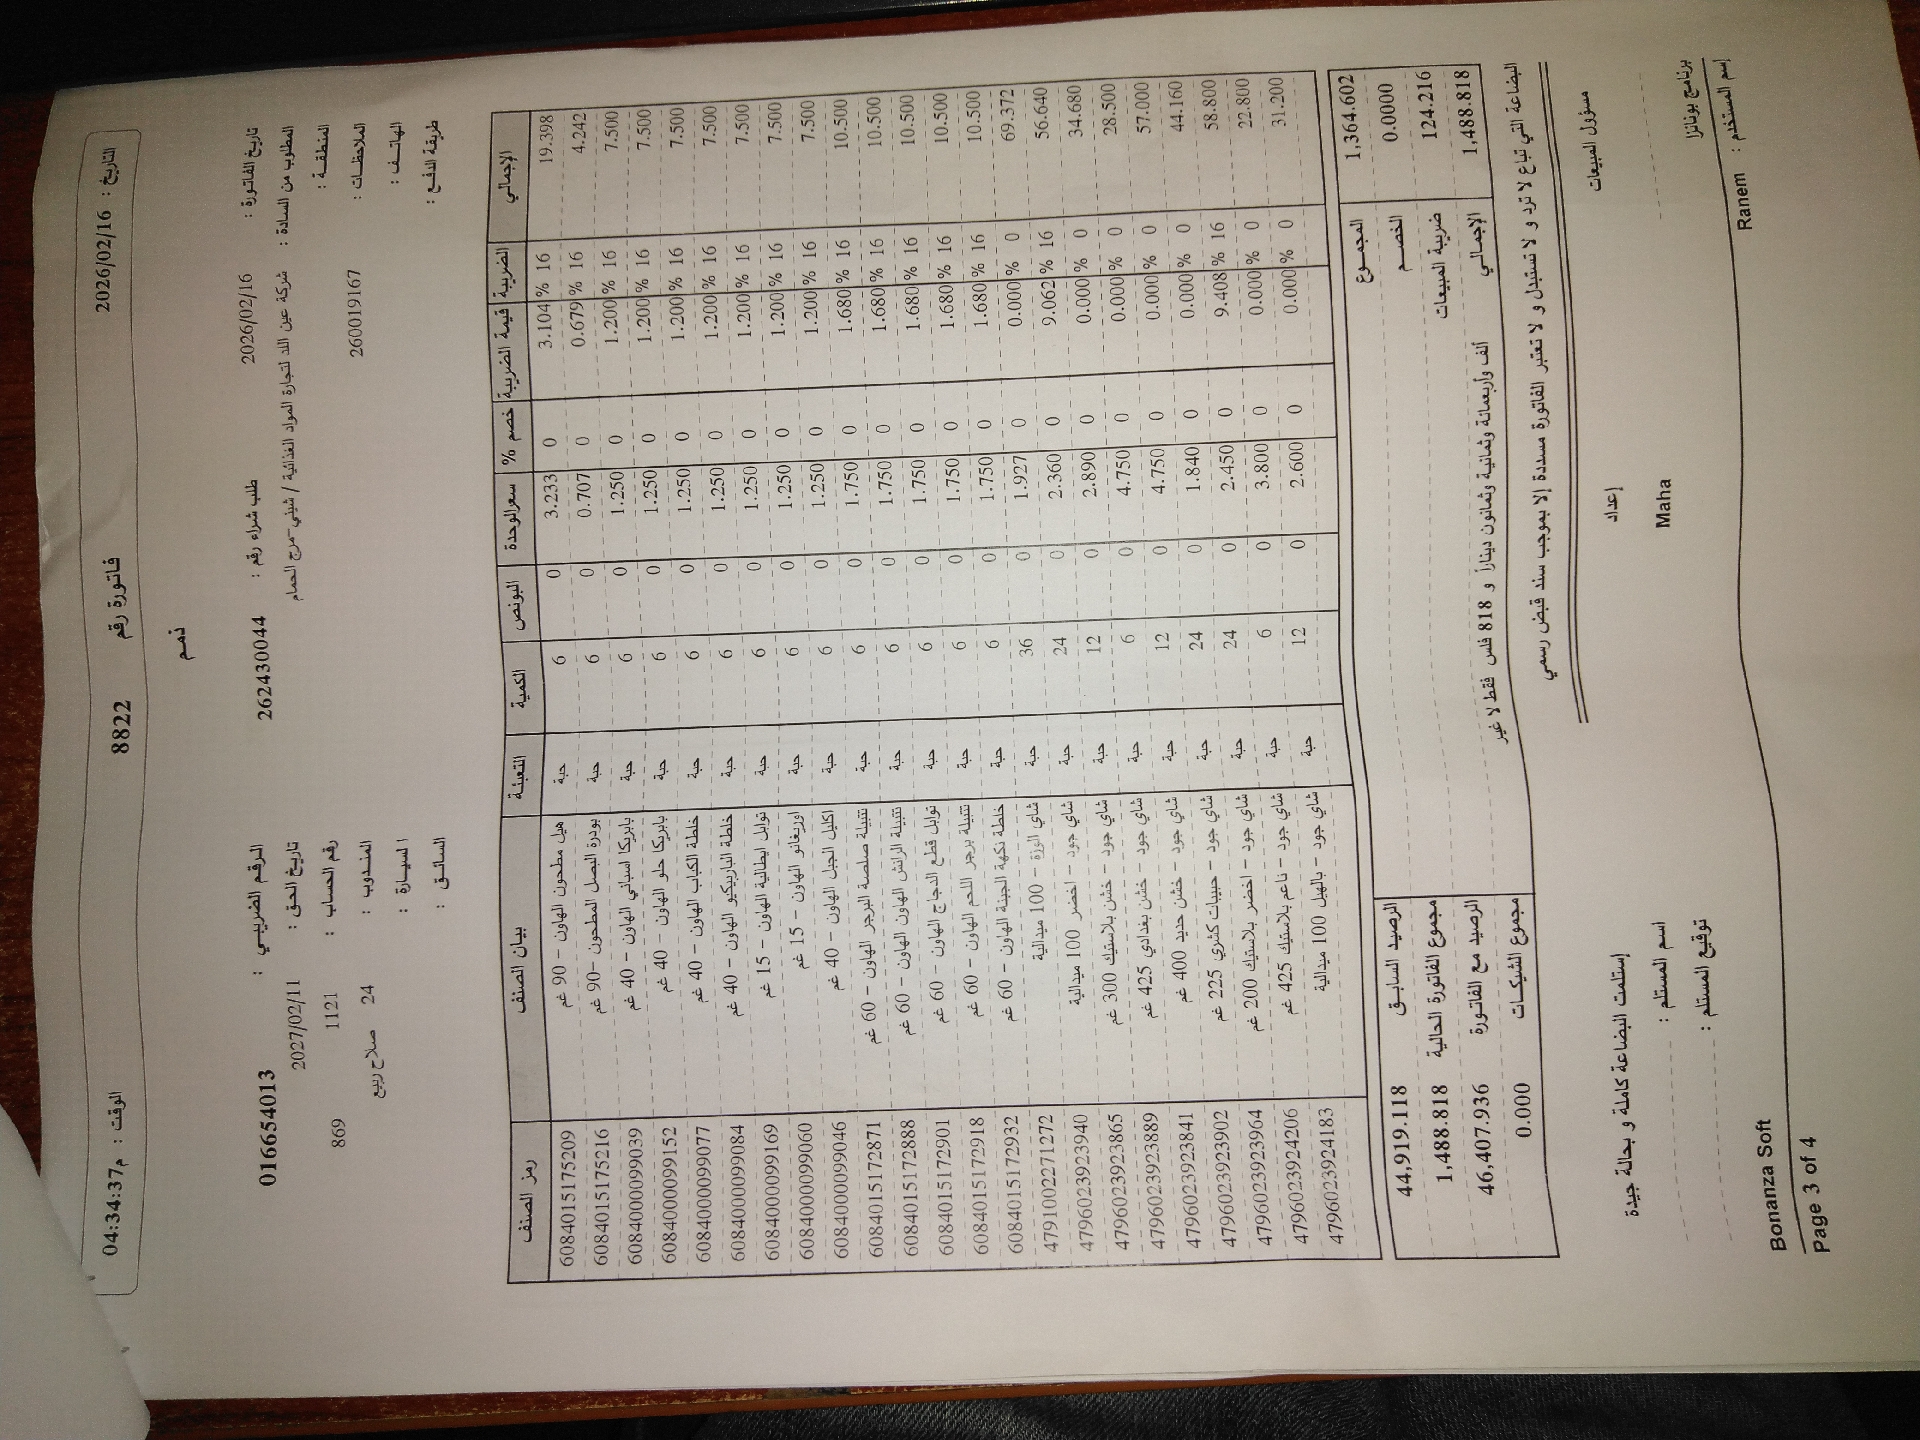 التاريخ : 2026/02/16 فاتورة رقم 8822 الوقت : 04:34:37م
ذمم
تاريخ الفاتورة : 2026/02/16 طلب شراء رقم : 262430044 الرقم الضريبي : 016654013
المطلوب من السادة : شركة عين اللد لتجارة المواد الغذائية / شيني-مرج الحمام تاريخ الحق : 2027/02/11
المنطقة : رقم الحساب : 1121 869
الملاحظات : 260019167 المندوب : 24 صلاح ربيع
الهاتف : السيارة :
طريقة الدفع : السائق :
رمز الصنف بيان الصنف التعبئة الكمية البونص سعر الوحدة خصم % قيمة الضريبة الضريبة الإجمالي
6084015175209 هيل مطحون الهاون - 90 غم حبة 6 0 3.233 0 3.104 % 16 19.398
6084015175216 بودرة البصل المطحون -90 غم حبة 6 0 0.707 0 0.679 % 16 4.242
6084000099039 بابريكا اسباني الهاون - 40 غم حبة 6 0 1.250 0 1.200 % 16 7.500
6084000099152 بابريكا حلو الهاون - 40 غم حبة 6 0 1.250 0 1.200 % 16 7.500
6084000099077 خلطة الكباب الهاون - 40 غم حبة 6 0 1.250 0 1.200 % 16 7.500
6084000099084 خلطة الباربيكيو الهاون - 40 غم حبة 6 0 1.250 0 1.200 % 16 7.500
6084000099169 توابل ايطالية الهاون - 15 غم حبة 6 0 1.250 0 1.200 % 16 7.500
6084000099060 اوريغانو الهاون - 15 غم حبة 6 0 1.250 0 1.200 % 16 7.500
6084000099046 اكليل الجبل الهاون - 40 غم حبة 6 0 1.250 0 1.200 % 16 7.500
6084015172871 تتبيلة صلصة البرجر الهاون - 60 غم حبة 6 0 1.750 0 1.680 % 16 10.500
6084015172888 تتبيلة الرانش الهاون الهاون - 60 غم حبة 6 0 1.750 0 1.680 % 16 10.500
6084015172901 توابل قطع الدجاج الهاون - 60 غم حبة 6 0 1.750 0 1.680 % 16 10.500
6084015172918 تتبيلة برجر اللحم الهاون - 60 غم حبة 6 0 1.750 0 1.680 % 16 10.500
6084015172932 خلطة نكهة الجبنة الهاون - 60 غم حبة 6 0 1.750 0 1.680 % 16 10.500
4791002271272 شاي الوزة - 100 ميدالية حبة 36 0 1.927 0 0.000 % 0 69.372
4796023923940 شاي جود - اخضر 100 ميدالية حبة 24 0 2.360 0 9.062 % 16 56.640
4796023923865 شاي جود - خشن بلاستيك 300 غم حبة 12 0 2.890 0 0.000 % 0 34.680
4796023923889 شاي جود - خشن بغدادي 425 غم حبة 6 0 4.750 0 0.000 % 0 28.500
4796023923841 شاي جود - خشن حديد 400 غم حبة 12 0 4.750 0 0.000 % 0 57.000
4796023923902 شاي جود - حبيبات كشري 225 غم حبة 24 0 1.840 0 0.000 % 0 44.160
4796023923964 شاي جود - اخضر بلاستيك 200 غم حبة 24 0 2.450 0 9.408 % 16 58.800
4796023924206 شاي جود - ناعم بلاستيك 425 غم حبة 6 0 3.800 0 0.000 % 0 22.800
4796023924183 شاي جود - بالهيل 100 ميدالية حبة 12 0 2.600 0 0.000 % 0 31.200
المجموع 1,364.602 الرصيد السابق 44,919.118
الخصم 0.0000 مجموع الفاتورة الحالية 1,488.818
ضريبة المبيعات 124.216 الرصيد مع الفاتورة 46,407.936
الإجمالي 1,488.818 ألف وأربعمائة وثمانية وثمانون ديناراً و 818 فلس فقط لا غير مجموع الشيكات 0.000
البضاعة التي تباع لا ترد و لا تستبدل و لا تعتبر الفاتورة مسددة إلا بموجب سند قبض رسمي
مسؤول المبيعات إعداد إستلمت البضاعة كاملة و بحالة جيدة
Maha اسم المستلم :
توقيع المستلم :
برنامج بونانزا Bonanza Soft
إسم المستخدم : Ranem Page 3 of 4